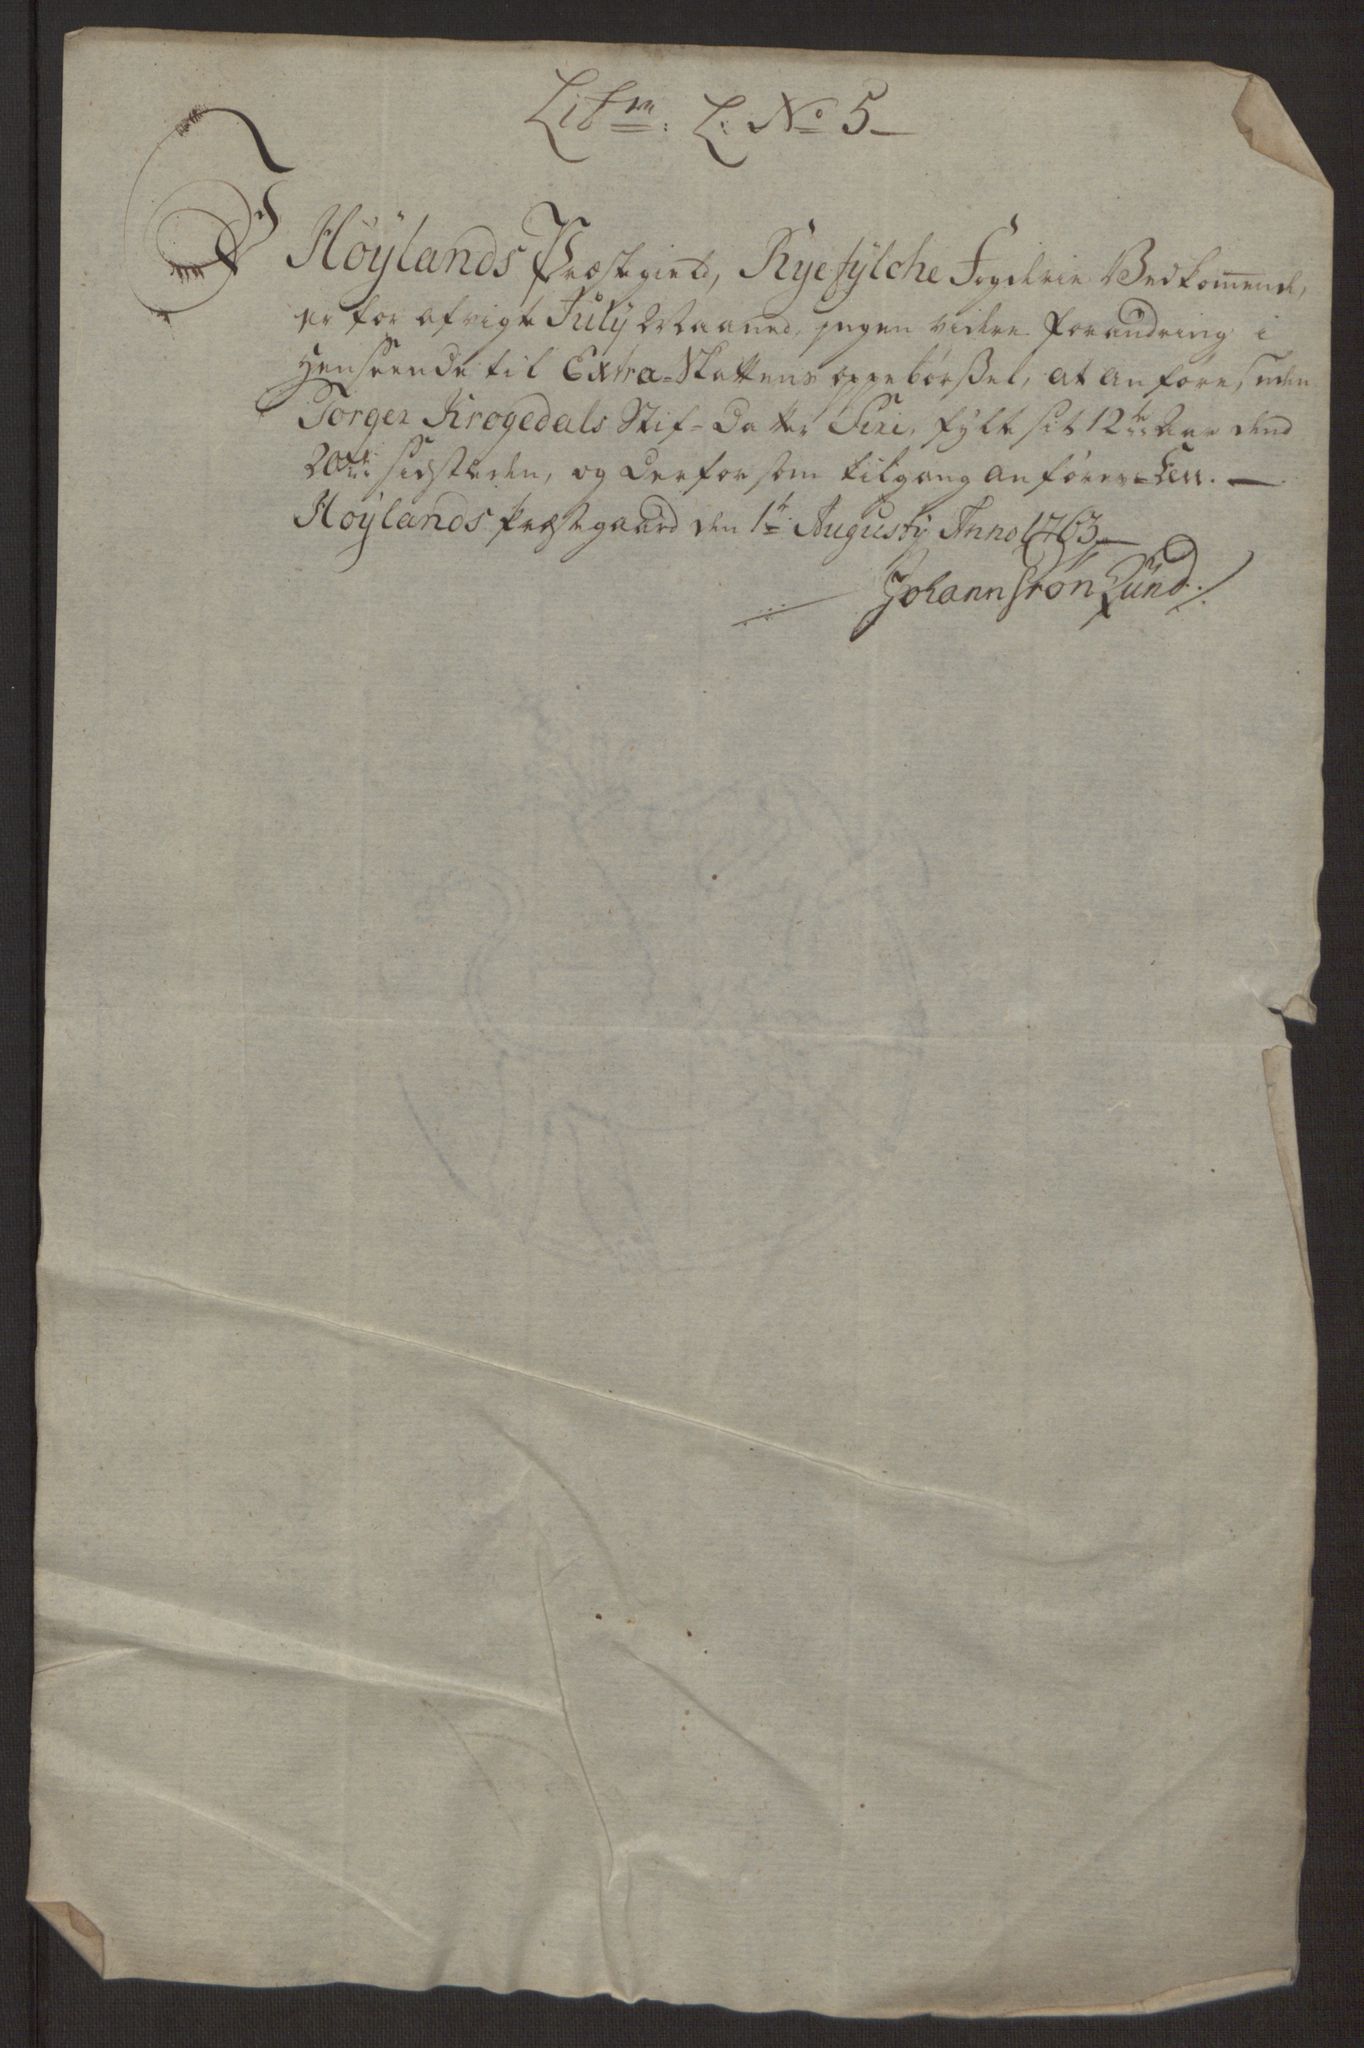 Litr: L: No 5
I Høÿlands Præstegield, Ryefylche Fogderie Vedkom̅ende,
er for afvigte Julÿ Maaned ingen videre forandring i
Henseende til Extra-Skattens oppebørßel, at anføre, uden
Torger Krogedals Stif-Datter Siri, fylt sit 12te Aar dend
20de sidstleden, og derfor som tilgang anføres her.
Høÿlands Præstegaard den 1te Augusty Anno 1763
Johan Grøn Lund